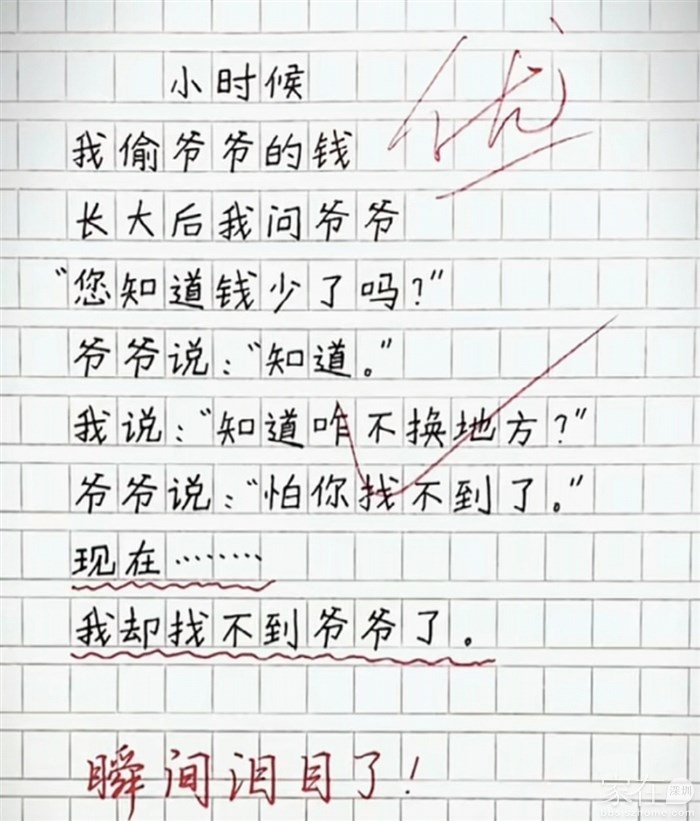 小时候
优
我偷爷爷的钱
长大后我问爷爷
“您知道钱少了吗?”
爷爷说:“知道。”
我说:“知道咋不换地方?”
爷爷说:“怕你找不到了。”
现在………
我却找不到爷爷了。
瞬间泪目了!
家在 深圳